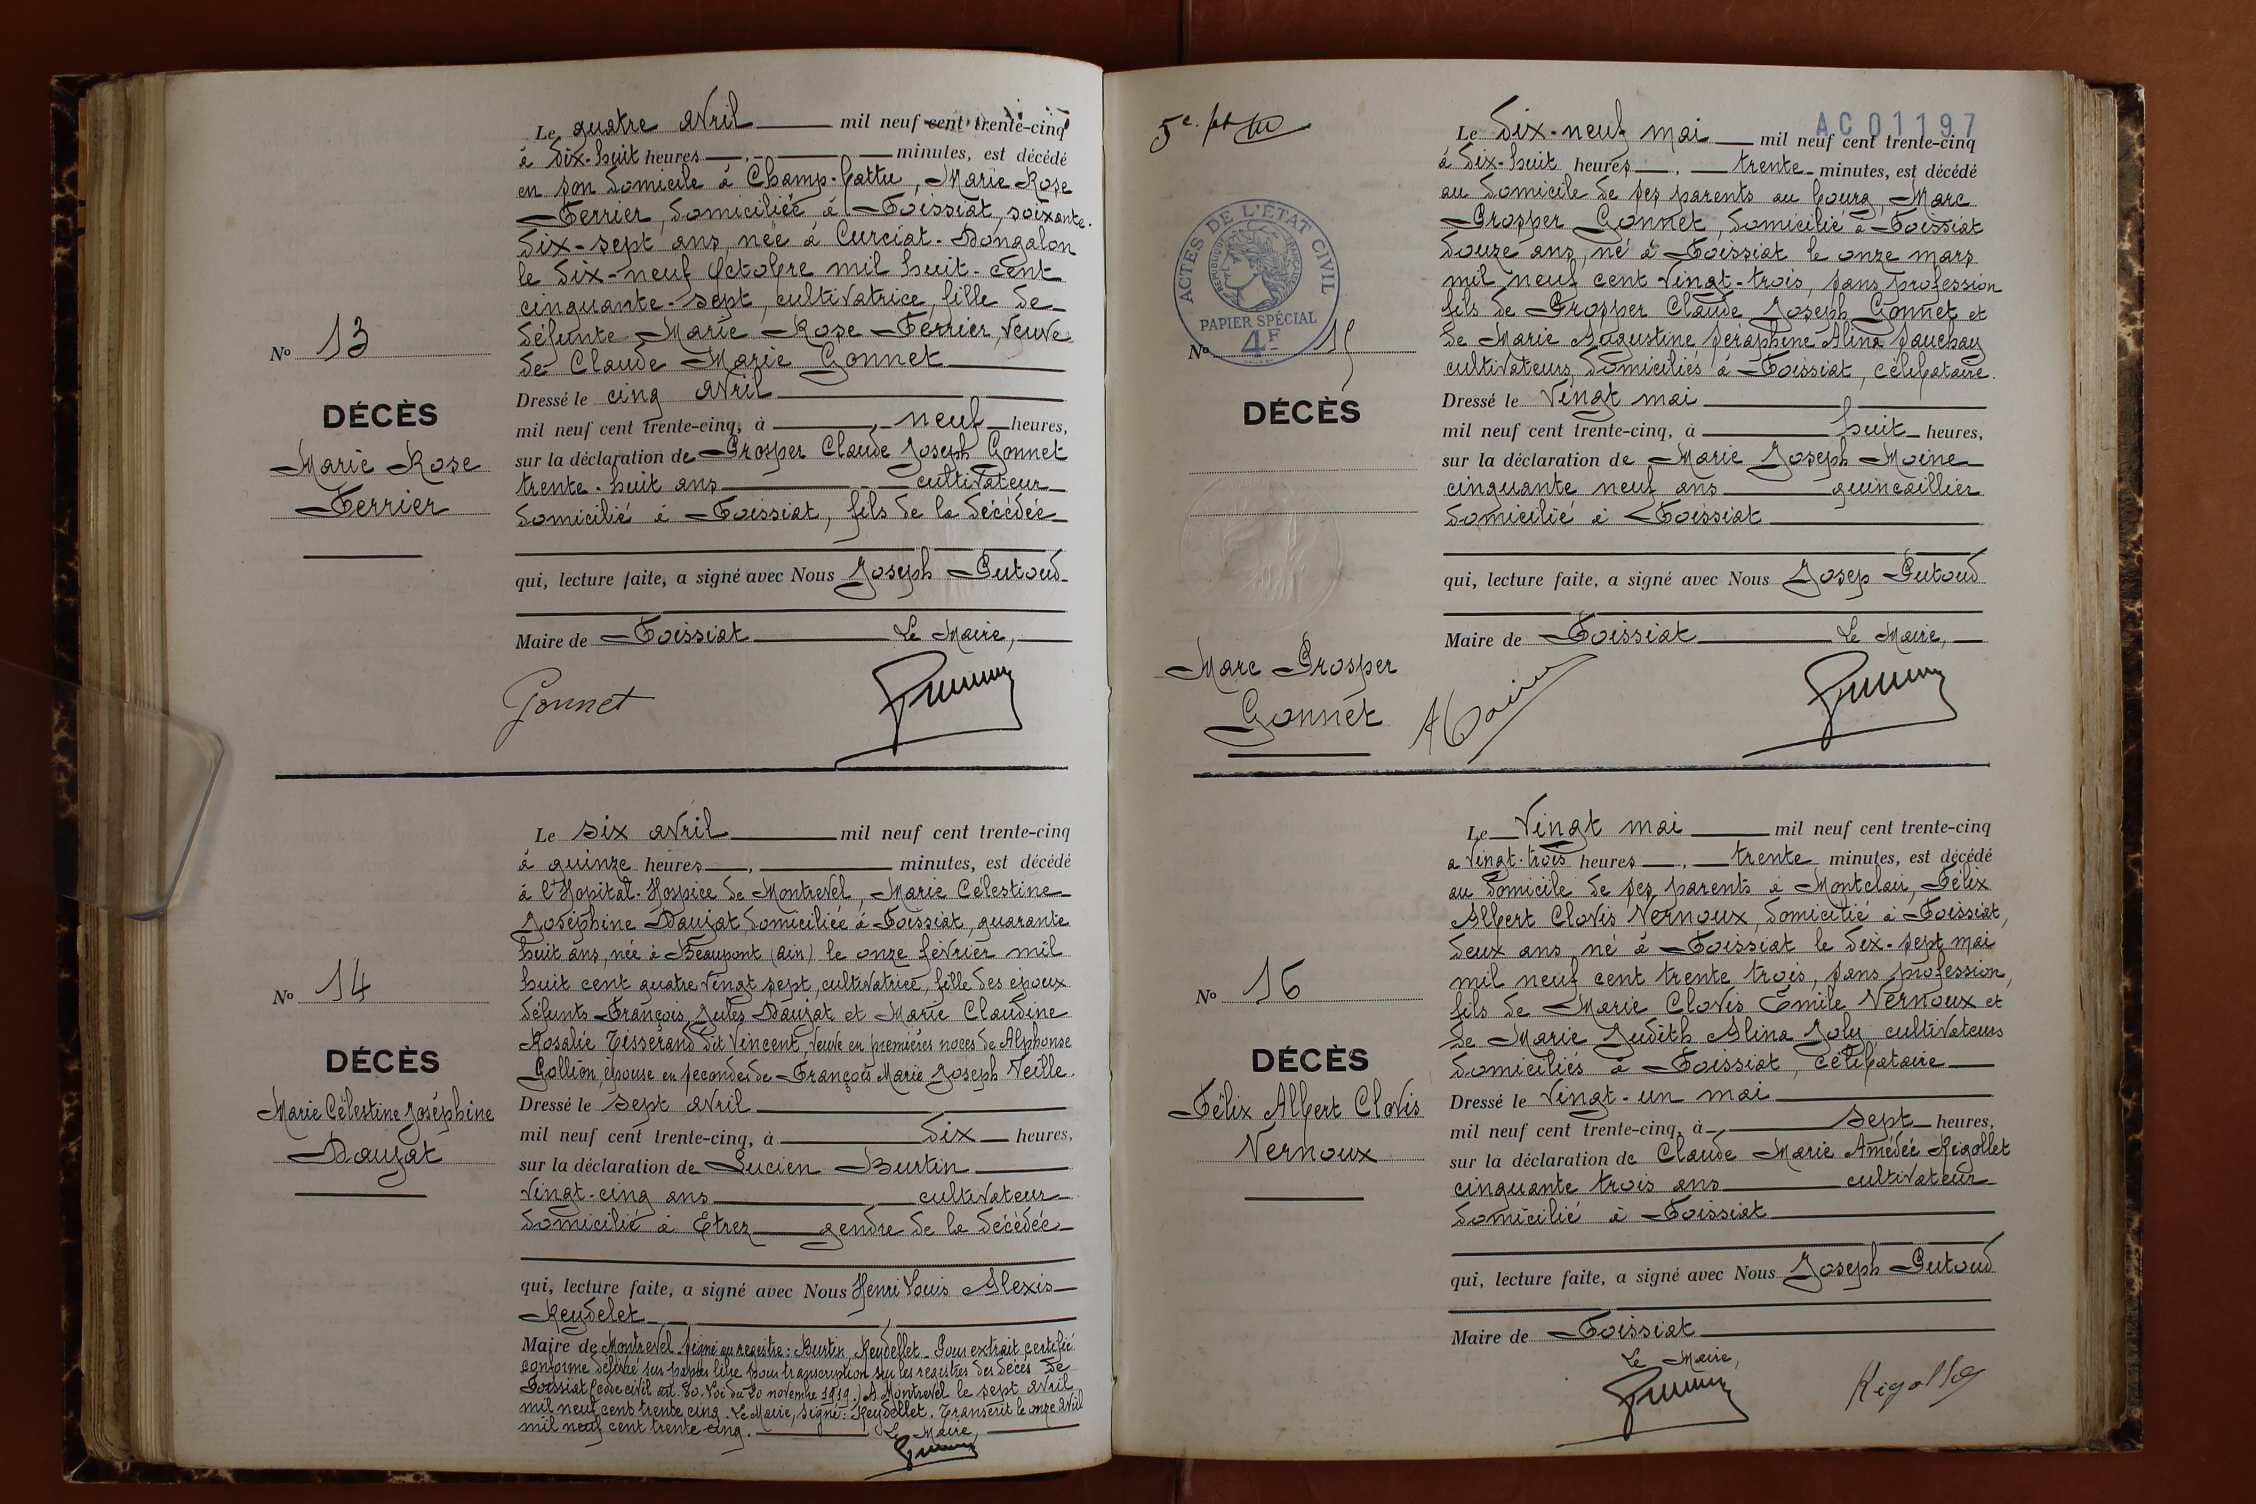 Le quatre avril mil neuf cent trente-cinq
à dix-huit heures minutes, est décédé
en son domicile à Champ-battu, Marie Rose
Ferrier, domiciliée à Foissiat, soixante-
dix-sept ans, née à Curciat-Dongalon
le dix-neuf Octobre mil huit-cent
cinquante-sept, cultivatrice, fille de
défunte Marie Rose Ferrier, veuve
de Claude Marie Gonnet
Nº 13
DÉCÈS
Marie Rose
Ferrier
Dressé le cinq avril
mil neuf cent trente-cinq, à neuf heures,
sur la déclaration de Prosper Claude Joseph Gonnet
trente-huit ans cultivateur
domicilié à Foissiat, fils de la décédée
qui, lecture faite, a signé avec Nous Joseph Putoud
Maire de Foissiat Le Maire,
Gonnet
Le six avril mil neuf cent trente-cinq
à quinze heures, minutes, est décédé
à l'Hopital-Hospice de Montrevel, Marie Célestine
Joséphine Daujat domiciliée à Foissiat, quarante
huit ans, née à Beaupont (Ain) le onze février mil
huit cent quatre vingt sept, cultivatrice, fille des époux
défunts François Jules Daujat et Marie Claudine
Rosalie Tisserand dit Vincent, veuve en premières noces de Alphonse
Gollion, épouse en secondes de François Marie Joseph Veille.
Nº 14
DÉCÈS
Marie Célestine Joséphine
Daujat
Dressé le sept avril
mil neuf cent trente-cinq, à dix heures,
sur la déclaration de Lucien Burtin
vingt-cinq ans cultivateur
domicilié à Etrez gendre de la décédée
qui, lecture faite, a signé avec Nous Henri Louis Alexis
Reydelet
Maire de Montrevel. Signé au registre: Burtin, Reydellet. Pour extrait certifié
conforme délivré sur papier libre pour transcription sur les registres des décès de
Foissiat (code civil art. 80. Loi du 20 novembre 1919.) A Montrevel le sept avril
mil neuf cent trente cinq. Le Maire, signé: Reydellet. Transcrit le onze avril
mil neuf cent trente cinq. Le Maire,
5e.
AC01197
Le dix-neuf mai mil neuf cent trente-cinq
à dix-huit heures, trente minutes, est décédé
au domicile de ses parents au bourg, Marc
Prosper Gonnet, domicilié à Foissiat
douze ans, né à Foissiat le onze mars
mil neuf cent vingt-trois, sans profession
fils de Prosper Claude Joseph Gonnet et
de Marie Augustine Séraphine Alina Pauchay
cultivateurs, domiciliés à Foissiat, célibataire.
ACTES DE L'ÉTAT CIVIL
RÉPUBLIQUE FRANÇAISE
PAPIER SPÉCIAL
4F
Nº 15
DÉCÈS
Marc Prosper
Gonnet
Dressé le vingt mai
mil neuf cent trente-cinq, à huit heures,
sur la déclaration de Marie Joseph Moine
cinquante neuf ans quincaillier
domicilié à Foissiat
qui, lecture faite, a signé avec Nous Josep Putoud
Maire de Foissiat Le Maire,
Moine
Le vingt mai mil neuf cent trente-cinq
à vingt-trois heures, trente minutes, est décédé
au domicile de ses parents à Montclair, Félix
Albert Clovis Vernoux, domicilié à Foissiat,
deux ans, né à Foissiat le dix-sept mai
mil neuf cent trente trois, sans profession,
fils de Marie Clovis Émile Vernoux et
de Marie Judith Alina Joly, cultivateurs
domiciliés à Foissiat, célibataire
Nº 16
DÉCÈS
Félix Albert Clovis
Vernoux
Dressé le vingt-un mai
mil neuf cent trente-cinq, à sept heures,
sur la déclaration de Claude Marie Amédée Rigollet
cinquante trois ans cultivateur
domicilié à Foissiat
qui, lecture faite, a signé avec Nous Joseph Putoud
Maire de Foissiat
Le Maire,
Rigollet